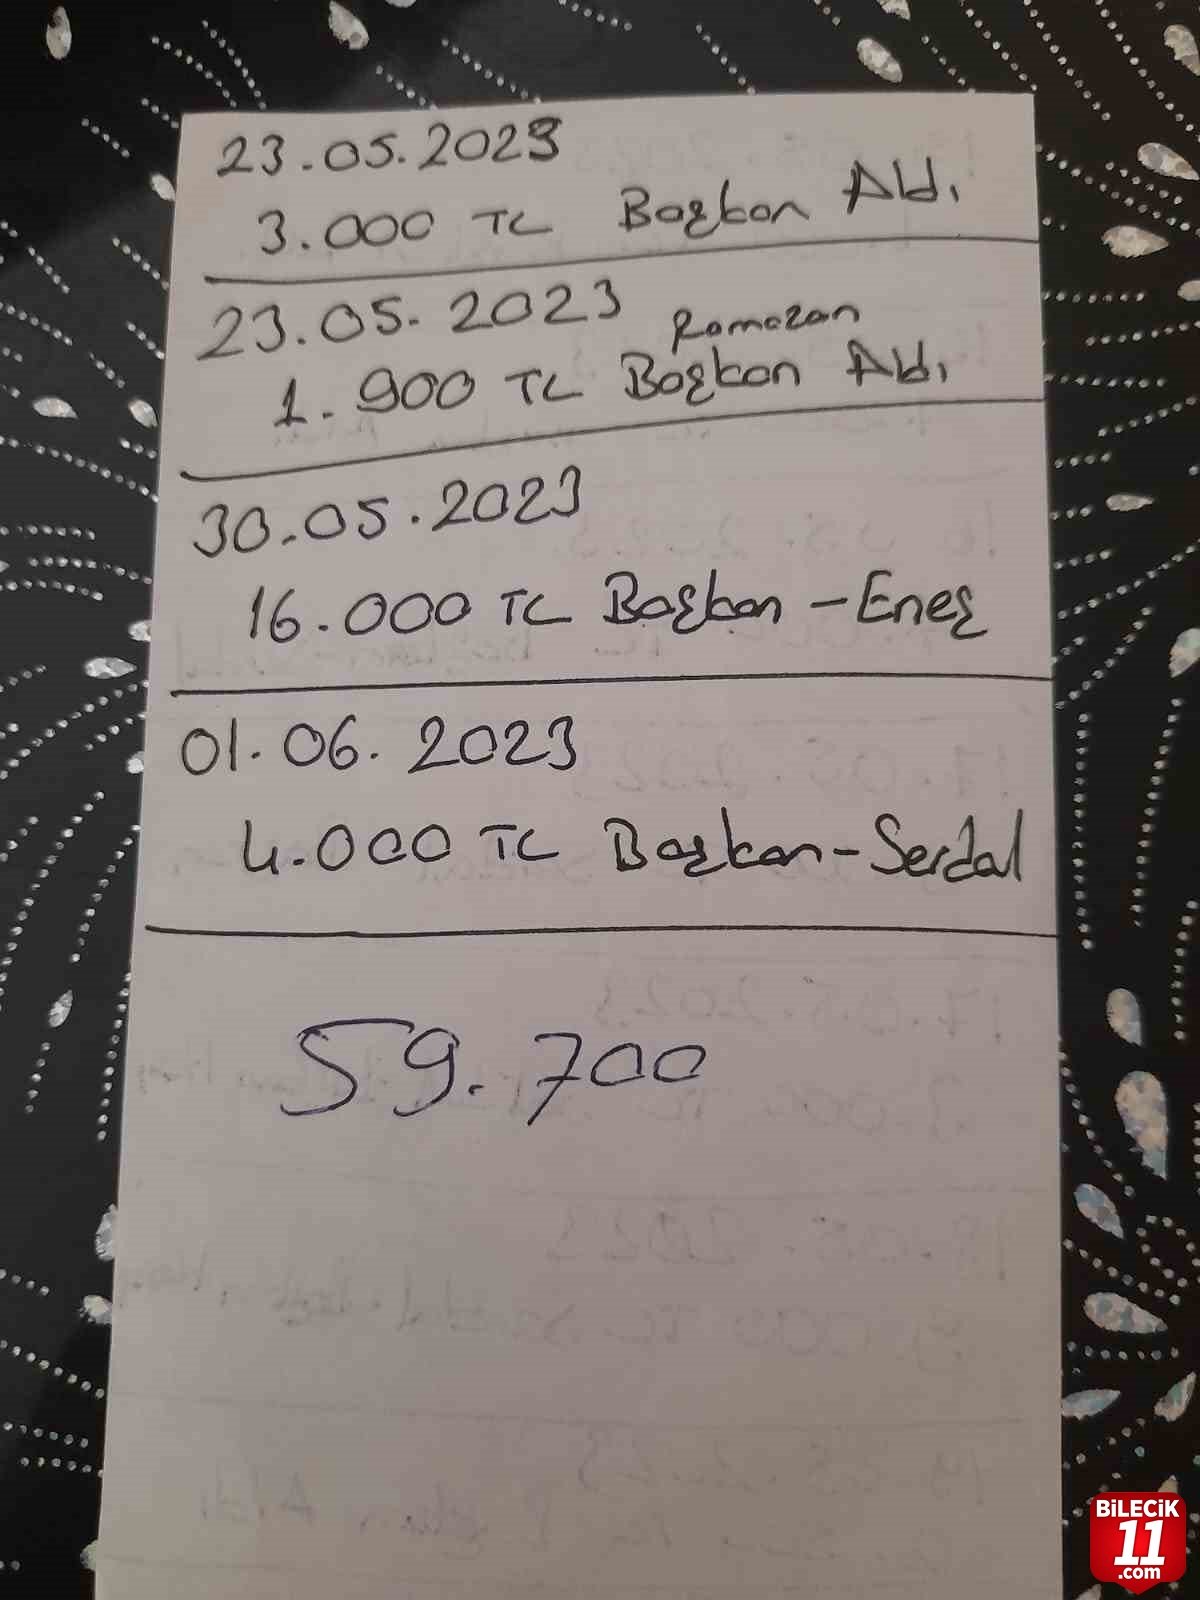 23.05.2023
3.000 TL Başkan Aldı
23.05.2023
Ramazan
1.900 TL Başkan Aldı
30.05.2023
16.000 TL Başkan - Eneş
01.06.2023
4.000 TL Başkan - Serdal
59.700
BiLECiK
11
.com